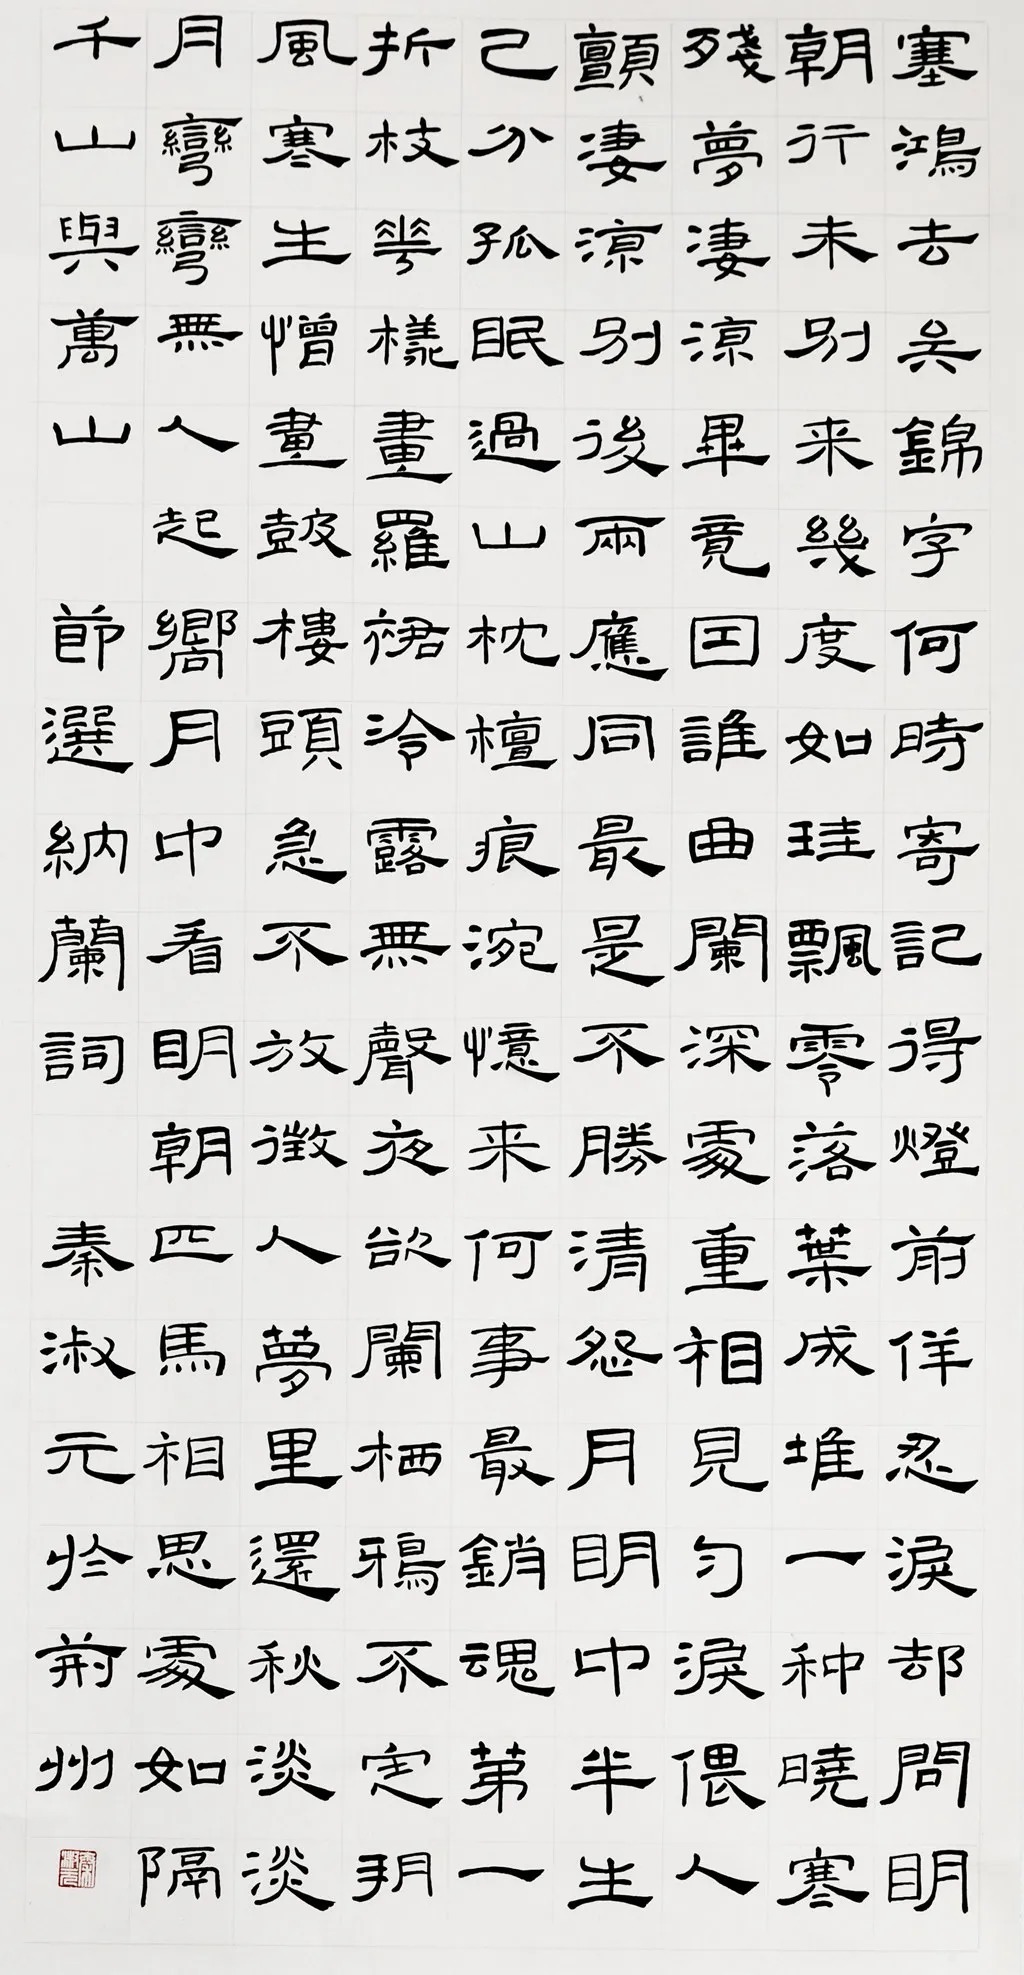 塞鴻去矣錦字何時寄記得燈前佯忍淚却問明
朝行未別来幾度如珪飄零落葉成堆一种曉寒
殘夢淒涼畢竟因誰曲闌深處重相見勻淚偎人
顫淒涼別後兩應同最是不勝清怨月明中半生
已分孤眠過山枕檀痕涴憶来何事最銷魂第一
折枝花樣畫羅裙冷露無聲夜欲闌栖鴉不定朔
風寒生憎畫鼓樓頭急不放徵人夢里還秋淡淡
月彎彎無人起嚮月中看明朝匹馬相思處如隔
千山與萬山 節選納蘭詞 秦淑元於荊州